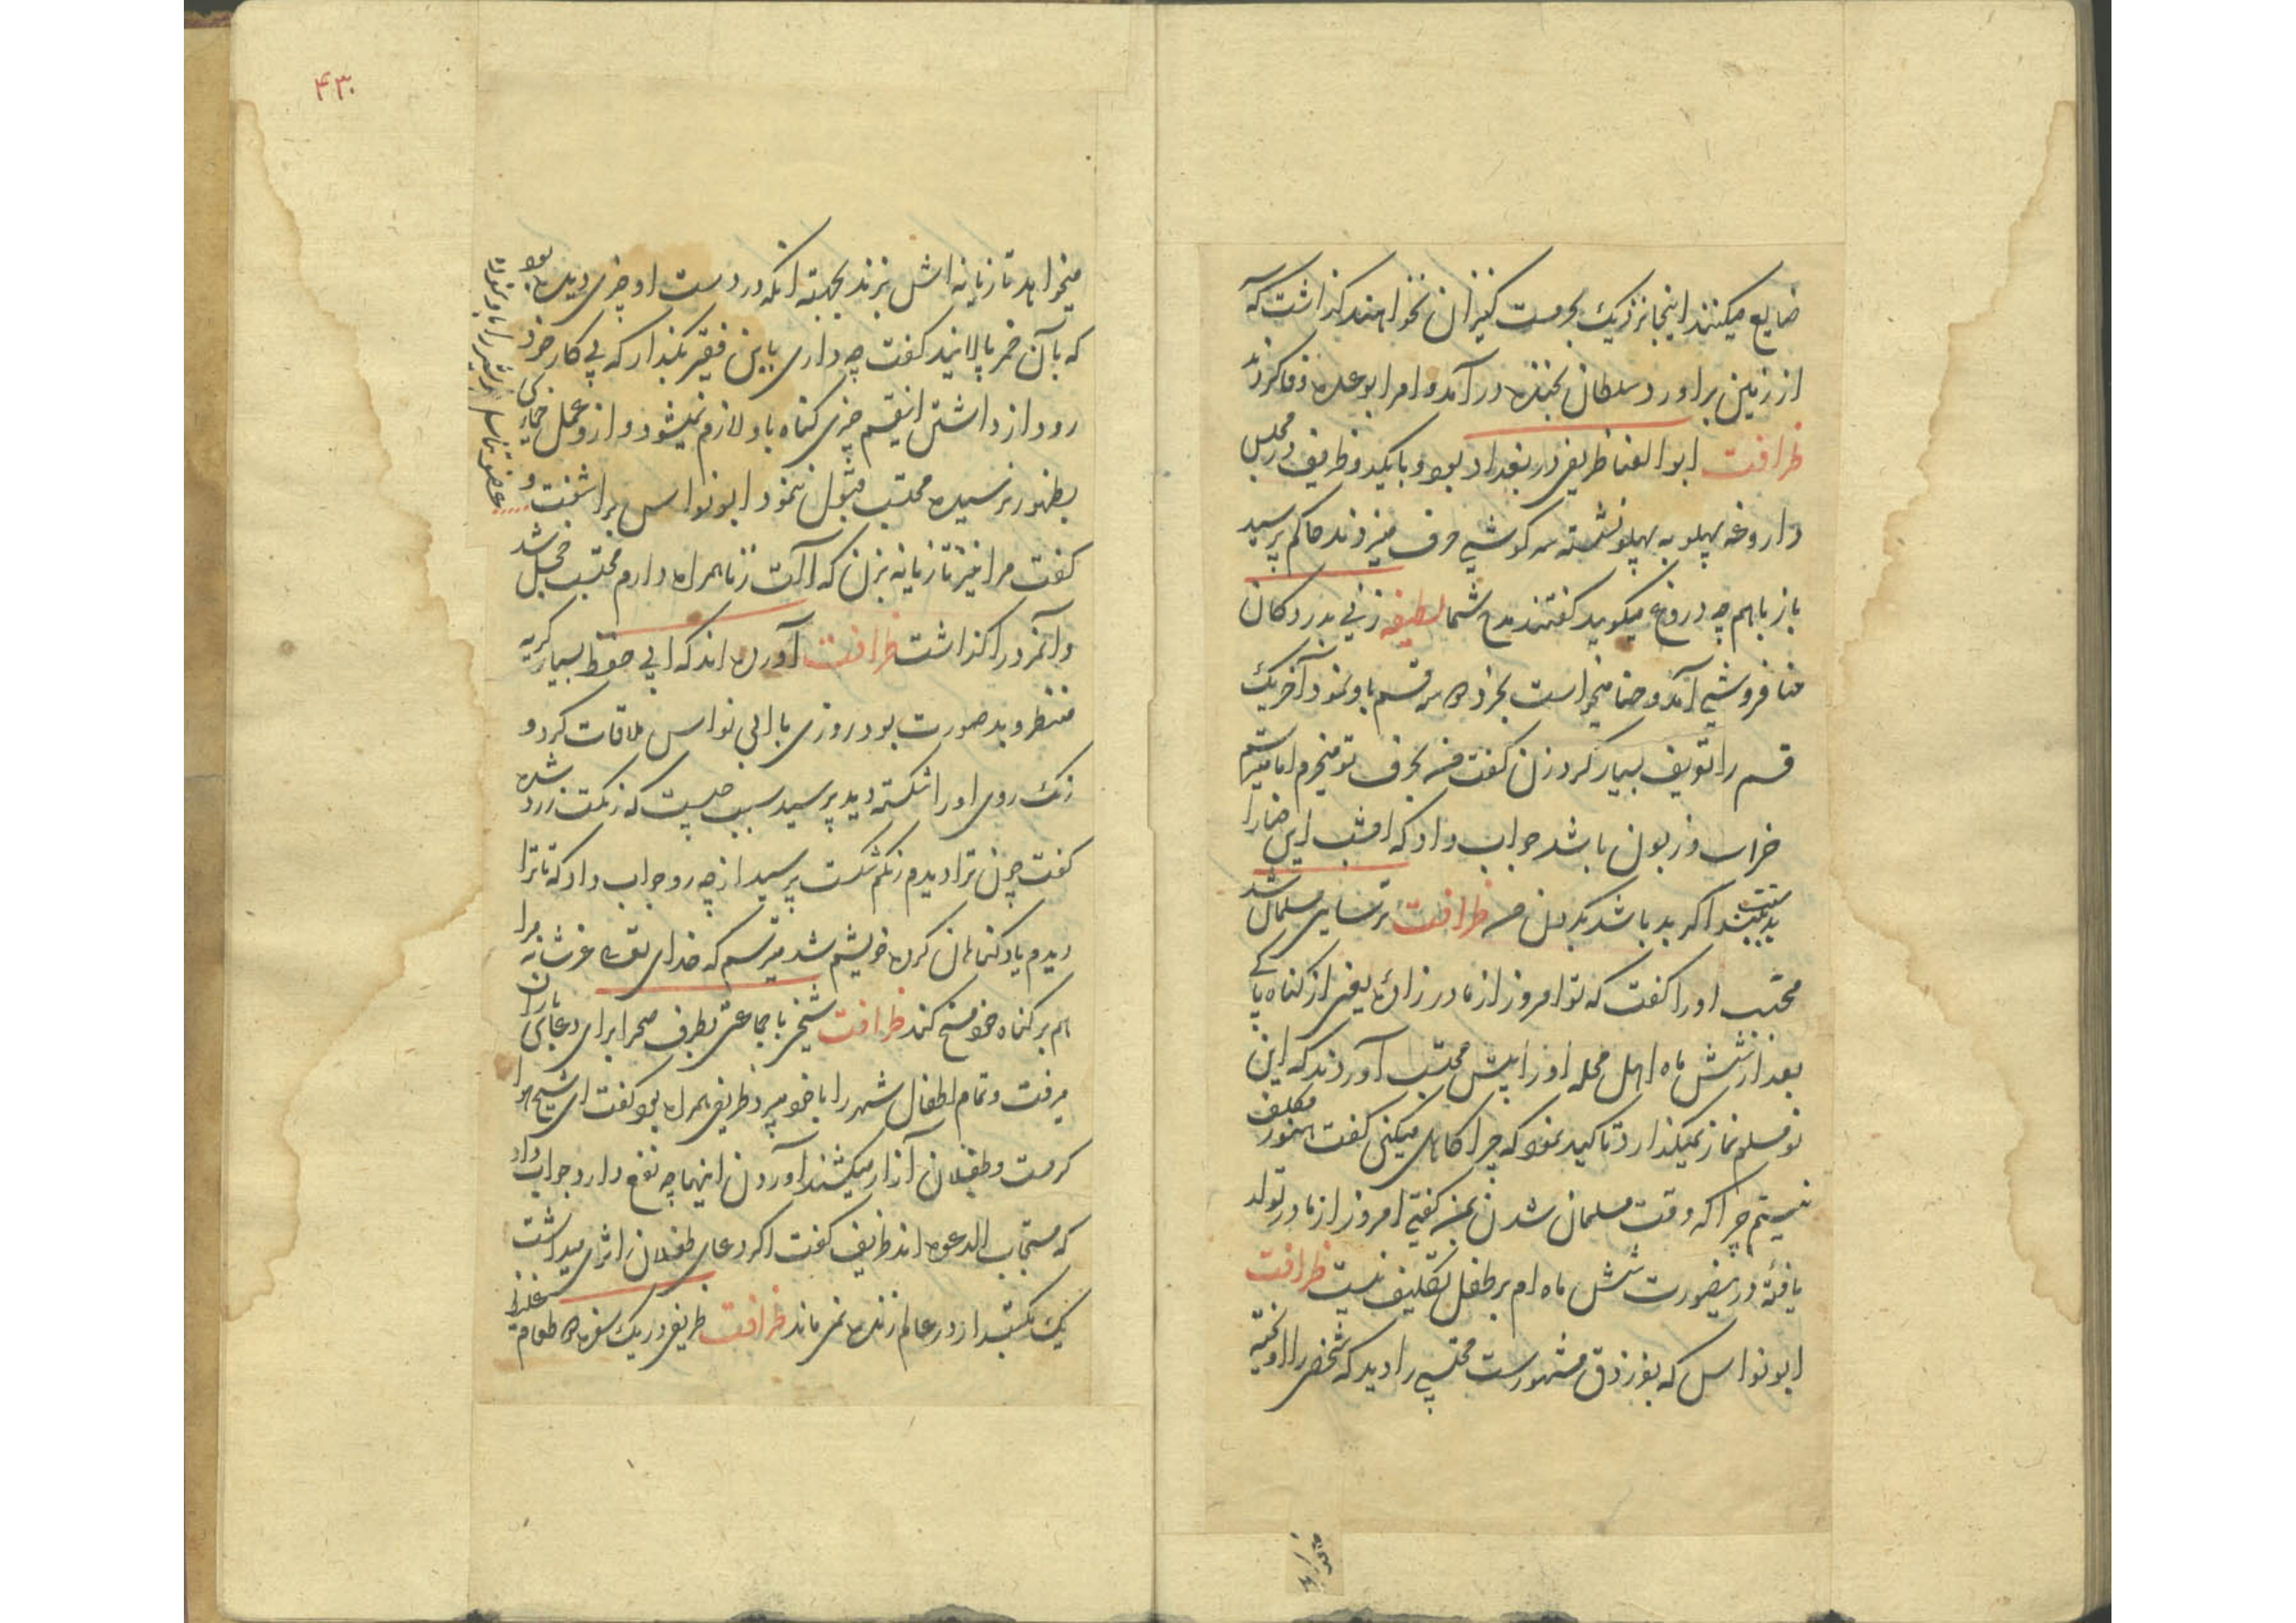 ضایع میکنند اینجا نزدیک بحرمت کنیزان نخواهند گذاشت که
از زمین براورد سلطان بخنده درآمد و امرا بوعده وفا کردند
ظرافت ابوالغنا ظریفی در بغداد بود و با یکی دو ظریف در مجلس
داروغه پهلو به پهلو نشسته سرگوشی حرف میزدند حاکم پرسید
باز باهم چه دروغ میگویید گفتند مدح شما لطیفه زنی بدر دکان
حنا فروشی آمد و حنا میخواست بخرد سه قسم باو نمود آخر یک
قسم را تعریف بسیار کرد زن گفت من بحرف تو میخرم اما میترسم
خراب و زبون باشد جواب داد که امشب این حنا را
ببندید اگر بد باشد بگردن من ظرافت ترسایی مسلمان شد
محتسب او را گفت که تو امروز از مادر زاده یعنی از گناه پاکی
بعد از شش ماه اهل محله او را پیش محتسب آوردند که این
نومسلم نماز نمیگذارد تاکید نمود که چرا کاهلی میکنی گفت هنوز مکلف
نیستم چرا که وقت مسلمان شدن بمن گفتی امروز از مادر تولد
یافتهٔ درینصورت شش ماه ام بر طفل تکلیف نیست ظرافت
ابونواس که بفرزدق مشهورست محتسبی را دید که شخصی را آویخته
میخواهد
۴۳۰
میخواهد تازیانه اش بزند بجهته آنکه در دست او چیزی دیده بود
که بآن خمر پالایند گفت چه داری باین فقیر بگذار که پی کار خود
رود از داشتن اینقسم چیزی گناه باو لازم نمیشود و ازو عمل خماری
بظهور نرسیده محتسب قبول ننمود ابونواس براشفت و
عضو تناسل
گفت مرا نیز تازیانه بزن که آلت زنا همراه دارم محتسب خجل شد
و آنمرد را گذاشت ظرافت آورده اند که ابی حفوظ بسیار کریه
منظر و بد صورت بود روزی با ابی نواس ملاقات کرد و
رنگ روی او را شکسته دید پرسید سبب چیست که رنگت زرد شده
گفت چون ترا دیدم رنگم شکست پرسید از چه رو جواب داد که تا ترا
دیدم یاد گناهان کرده خویشم شد میترسم که خدای تعالی عزشانه مرا
هم بر گناه خود مسخ کند ظرافت شیخی با جماعتی بطرف صحرا برای دعای باران
میرفت و تمام اطفال شهر را با خود میبرد ظریفی همراه بود گفت ای شیخ هوا
گرمست و طفلان آزار میکشند آوردن اینها چه نفع دارد جواب داد
که مستجاب الدعوه اند ظریف گفت اگر دعای طفلان را اثری میداشت
یک مکتبدار در عالم زنده نمی ماند ظرافت ظریفی در یک سفره طعام